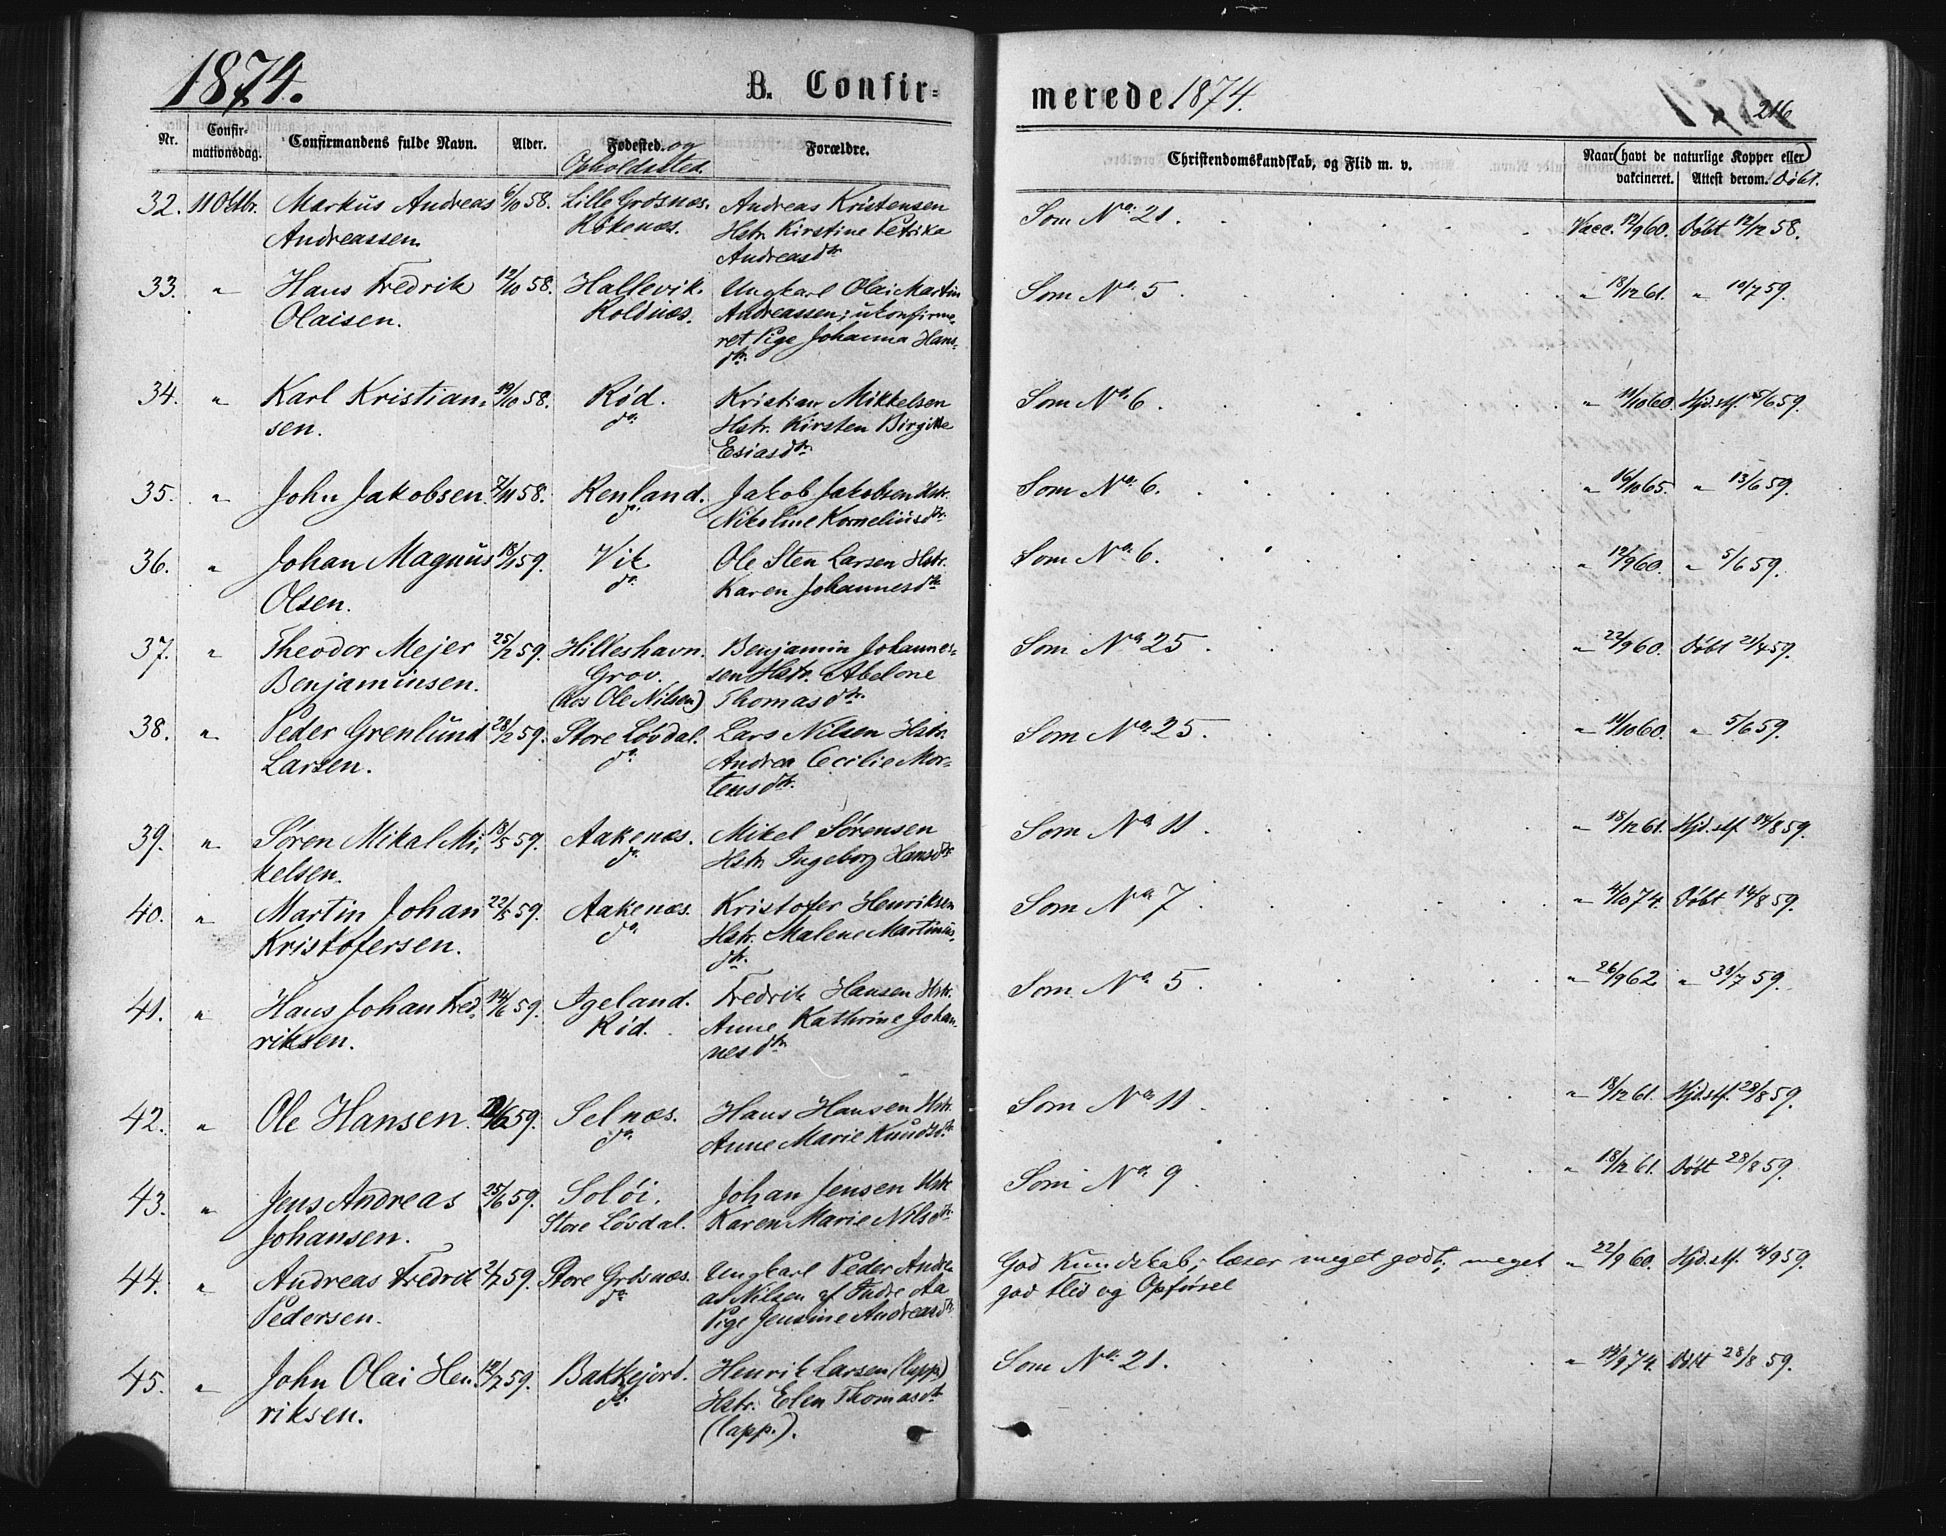 1874.
B. Confir-
merede 1874.
216
Nr.
Confir-
mationsdag.
Confirmandens fulde Navn.
Alder.
Fødested. og
Opholdssted.
Forældre.
Christendomskundskab, og Flid m. v.
Naar (havt de naturlige Kopper eller)
vakcineret.
Attest derom. Døbt.
32. 11 Oktbr. Markus Andreas 6/10 58. Lille Grøsnæs. Andreas Kristensen Som No. 21. Vacc. 12/9 60. Døbt 12/12 58.
Andreassen. Røkenæs. Hstr. Kirstine Petrika
Andreasdtr.
33. " Hans Fredrik 12/10 58. Hallevik. Ungkarl Olai Martin Som No. 5. " 18/12 61. " 10/7 59.
Olaisen. Roldnæs. Andreassen; ukonfirme-
ret Pige Johanna Hans-
dtr.
34. " Karl Kristian- 19/10 58. Rød. Kristian Mikkelsen Som No. 6. " 11/10 60. Hjd.stf. 25/6 59.
sen. do. Hstr. Kirsten Birgitte
Esiasdtr.
35. " John Jakobsen. 7/11 58. Renland. Jakob Jakobsen Hstr. Som No. 6. " 16/10 65. " 13/6 59.
do. Nikoline Korneliusdtr.
36. " Johan Magnus 18/1 59. Vik Ole Sten Larsen Hstr. Som No. 6. " 12/9 60. " 5/6 59.
Olsen. do. Karen Johannesdtr
37. " Theodor Mejer 25/2 59. Hilleshavn. Benjamin Johannes- Som No. 25. " 22/9 60. Døbt 21/4 59.
Benjaminsen. Grov. sen Hstr. Abelone
(hos Ole Nilsen) Thomasdtr.
38. " Peder Grenlund 28/2 59. Store Løvdal. Lars Nilsen Hstr. Som No. 25. " 11/10 60. " 5/6 59.
Larsen. do. Andrea Cecilie Mor-
tensdtr.
39. " Søren Mikal Mi- 18/5 59. Aakenæs. Mikel Sørensen Som No. 11. " 18/12 61. Hjd.stf. 14/8 59.
kelsen. do. Hstr. Ingeborg Hansdtr
40. " Martin Johan 22/5 59. Aakenæs. Kristofer Henriksen Som No. 7. " 4/10 74. Døbt 14/8 59.
Kristofersen. do. Hstr. Malene Martinus-
dtr.
41. " Hans Johan Fred- 14/6 59. Igeland. Fredrik Hansen Hstr. Som No. 5. " 26/9 62 " 31/7 59.
riksen. Rød. Anne Kathrine Johan-
nesdtr.
42. " Ole Hansen. 59. Selnæs. Hans Hansen Hstr. Som No. 11. " 18/12 61. Hjd.stf. 28/8 59.
do. Anne Marie Knudsdtr.
43. " Jens Andreas 25/6 59. Soløi. Johan Jensen Hstr. Som No. 9. " 18/12 61. Døbt 28/8 59.
Johansen. Store Løvdal. Karen Marie Nilsdtr.
44. " Andreas Fredrik 2/7 59. Store Grøsnæs. Ungkarl Peder Andre- God Kundskab; læser meget godt; meget " 22/9 60. Hjd.stf. 4/9 59.
Pedersen. do. as Nilsen af Indre Aa god Flid og Opførsel
Pige Jensine Andreasdtr
45. " John Olai Hen- 12/7 59. Bakkejord. Henrik Larsen (lapp.) Som No. 21. " 13/9 74. Døbt 28/8 59.
riksen. do. Hstr. Elen Thomasdtr
(lapp.).